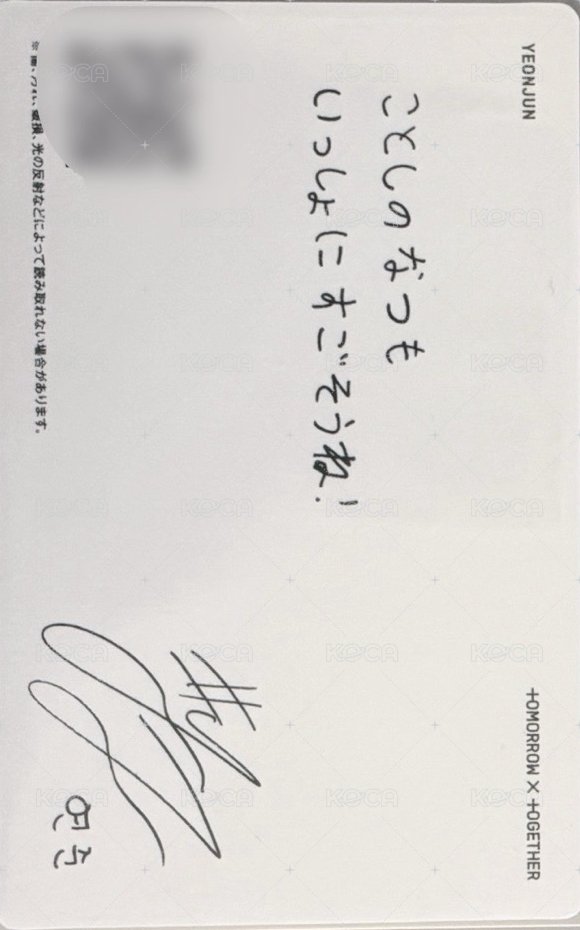 YEONJUN
TOMORROW X TOGETHER
ことしのなつも
いっしょにすごそうね!
연준
※ 破損、光の反射などによって読み取れない場合があります。
KOCA